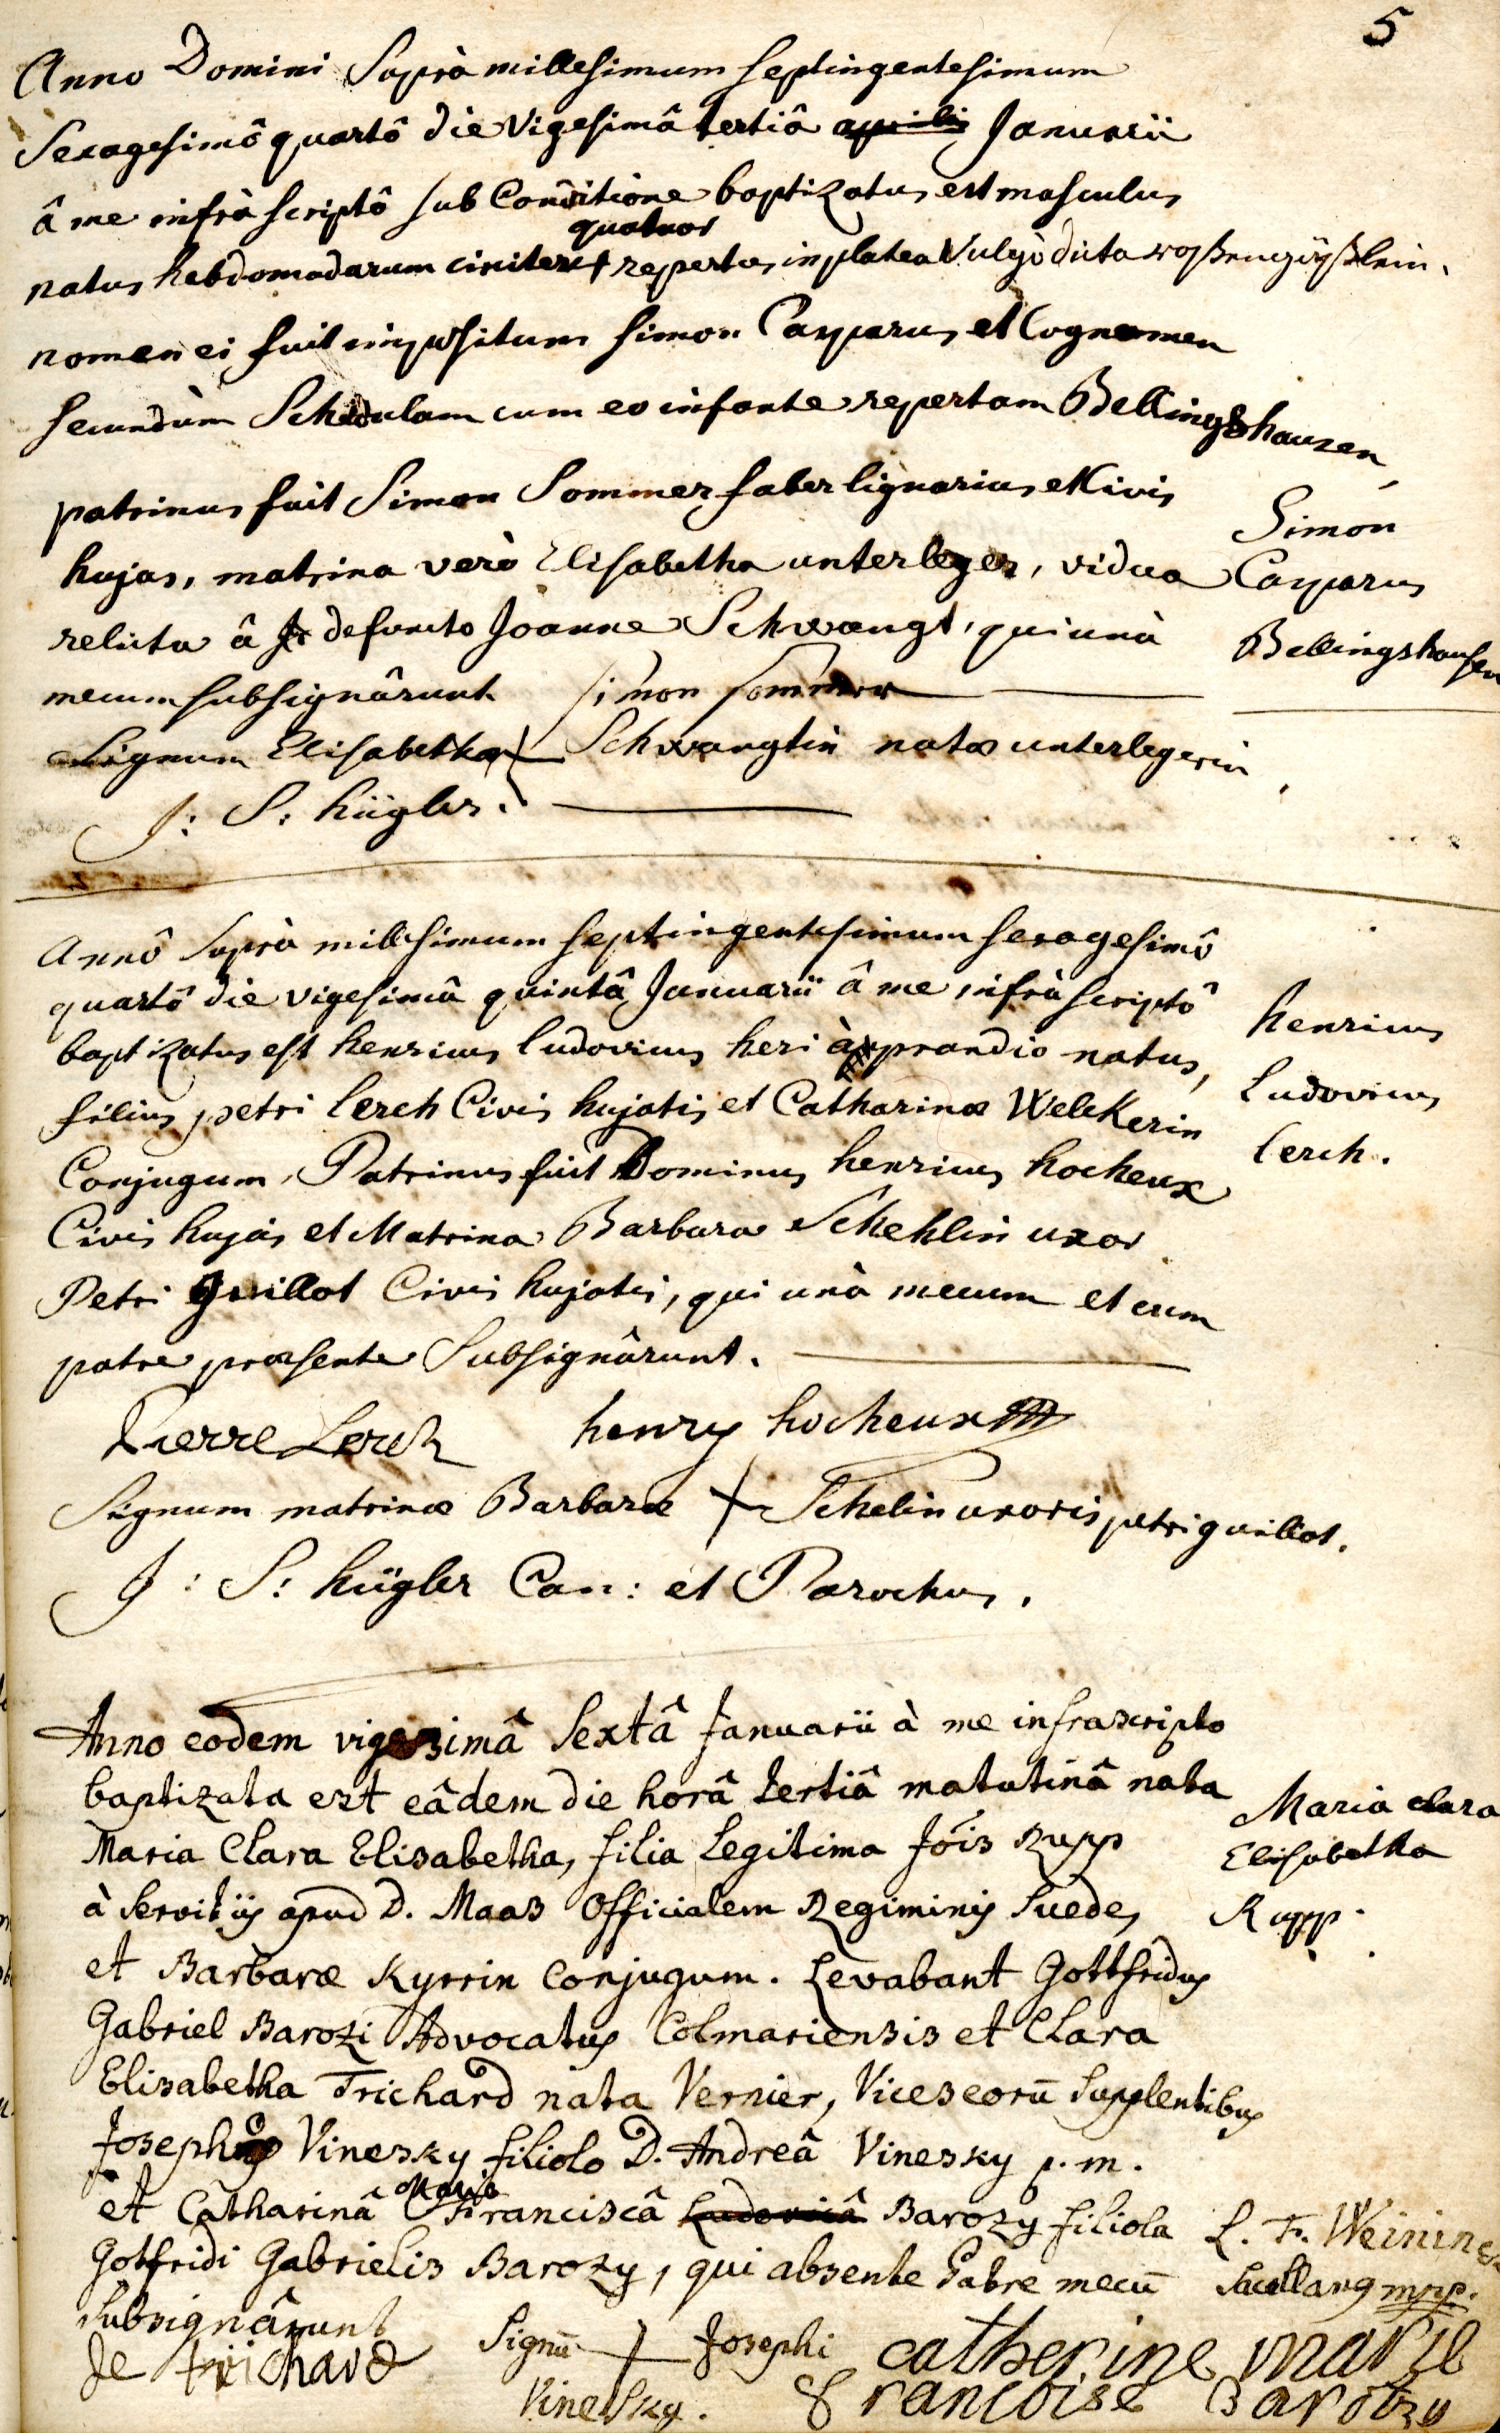 5
Anno Domini Suprà millesimum septingentesimum
Sexagesimô quartô die Vigesimâ tertiâ aprilis Januarii
â me infrà scriptô sub Conditione baptizatus est masculus
quatuor
natus hebdomadarum circiter + repertus in platea Vulgò dicta
nomen ei fuit impositum Simon Casparus et Cognomen
secundùm Schedulam cum eo infante repertam Bellingshausen,
patrinus fuit Simon Sommer faber lignarius et Civis
hujas, matrina verò Elisabetha unterleger, vidua
relicta â defuncto Joanne Schwangt, qui unà
mecum subsignârunt simon sommer
Signum Elisabethæ + Schwangtin natæ unterlegerin.
J: S: hügler.
Simon
Casparus
Bellingshausen
Annô Suprà millesimum septingentesimum sexagesimô
quartô die vigesimâ quintâ Januarii â me infrà scriptô
baptizatus est henricus ludovicus heri à prandio natus,
filius petri lerch Civis hujatis et Catharinæ Welckerin
Conjugum, Patrinus fuit Dominus henricus hocheux
Civis hujas et Matrina Barbara Schehlin uxor
Petri guillot Civis hujatis, qui unà mecum et cum
patre præsente Subsignârunt.
henricus
Ludovicus
lerch.
Pierre Lerch henry hocheux
Signum matrinæ Barbaræ + Schelin uxoris petri guillot.
J: S: hügler Can: et Parochus.
Anno eodem vigesimâ Sextâ Januarii à me infrascripto
baptizata est eâdem die horâ tertiâ matutinâ nata
Maria Clara Elisabetha, filia Legitima Jois Rupp
à Servitiis apud D. Maas Officialem Regiminis Suede,
et Barbaræ Kyrrin Conjugum. Levabant Gottfridus
Gabriel Barozi Advocatus Colmariensis et Clara
Elisabetha Trichard nata Vernier, Vices eorū Supplentibus
Josepho Vinesky filiolo D. Andreâ Vinesky p. m.
Maria
et Catharinâ Franciscâ Ludovicâ Barozy filiola
Gotfridi Gabrielis Barozy, qui absente Patre mecū
Subsignârunt
Maria clara
Elisabetha
Rupp.
L. F. Weininger
Sacellanus mpp.
De trichard
Signū + Josephi
Vinesky.
catherine marie
francoise Barotzy